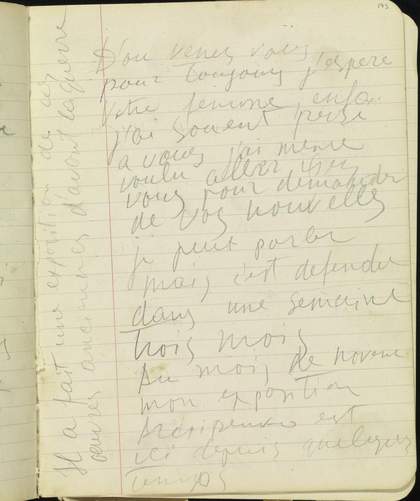 D'ou venez vous
pour toujours j'espère
Votre femme, enfa
j'ai souvent pensé
a vous j'ai meme
voulu aller
vous pour demander
de vos nouvelles
je peut parler
mais c'est defendu
dans une semaine
trois mois
Au mois de novem
mon exposition
Archipenko est
ici depuis quelques
temps
Il a fait une exposition de ces
oeuvres anciennes d'avant la guerre
195